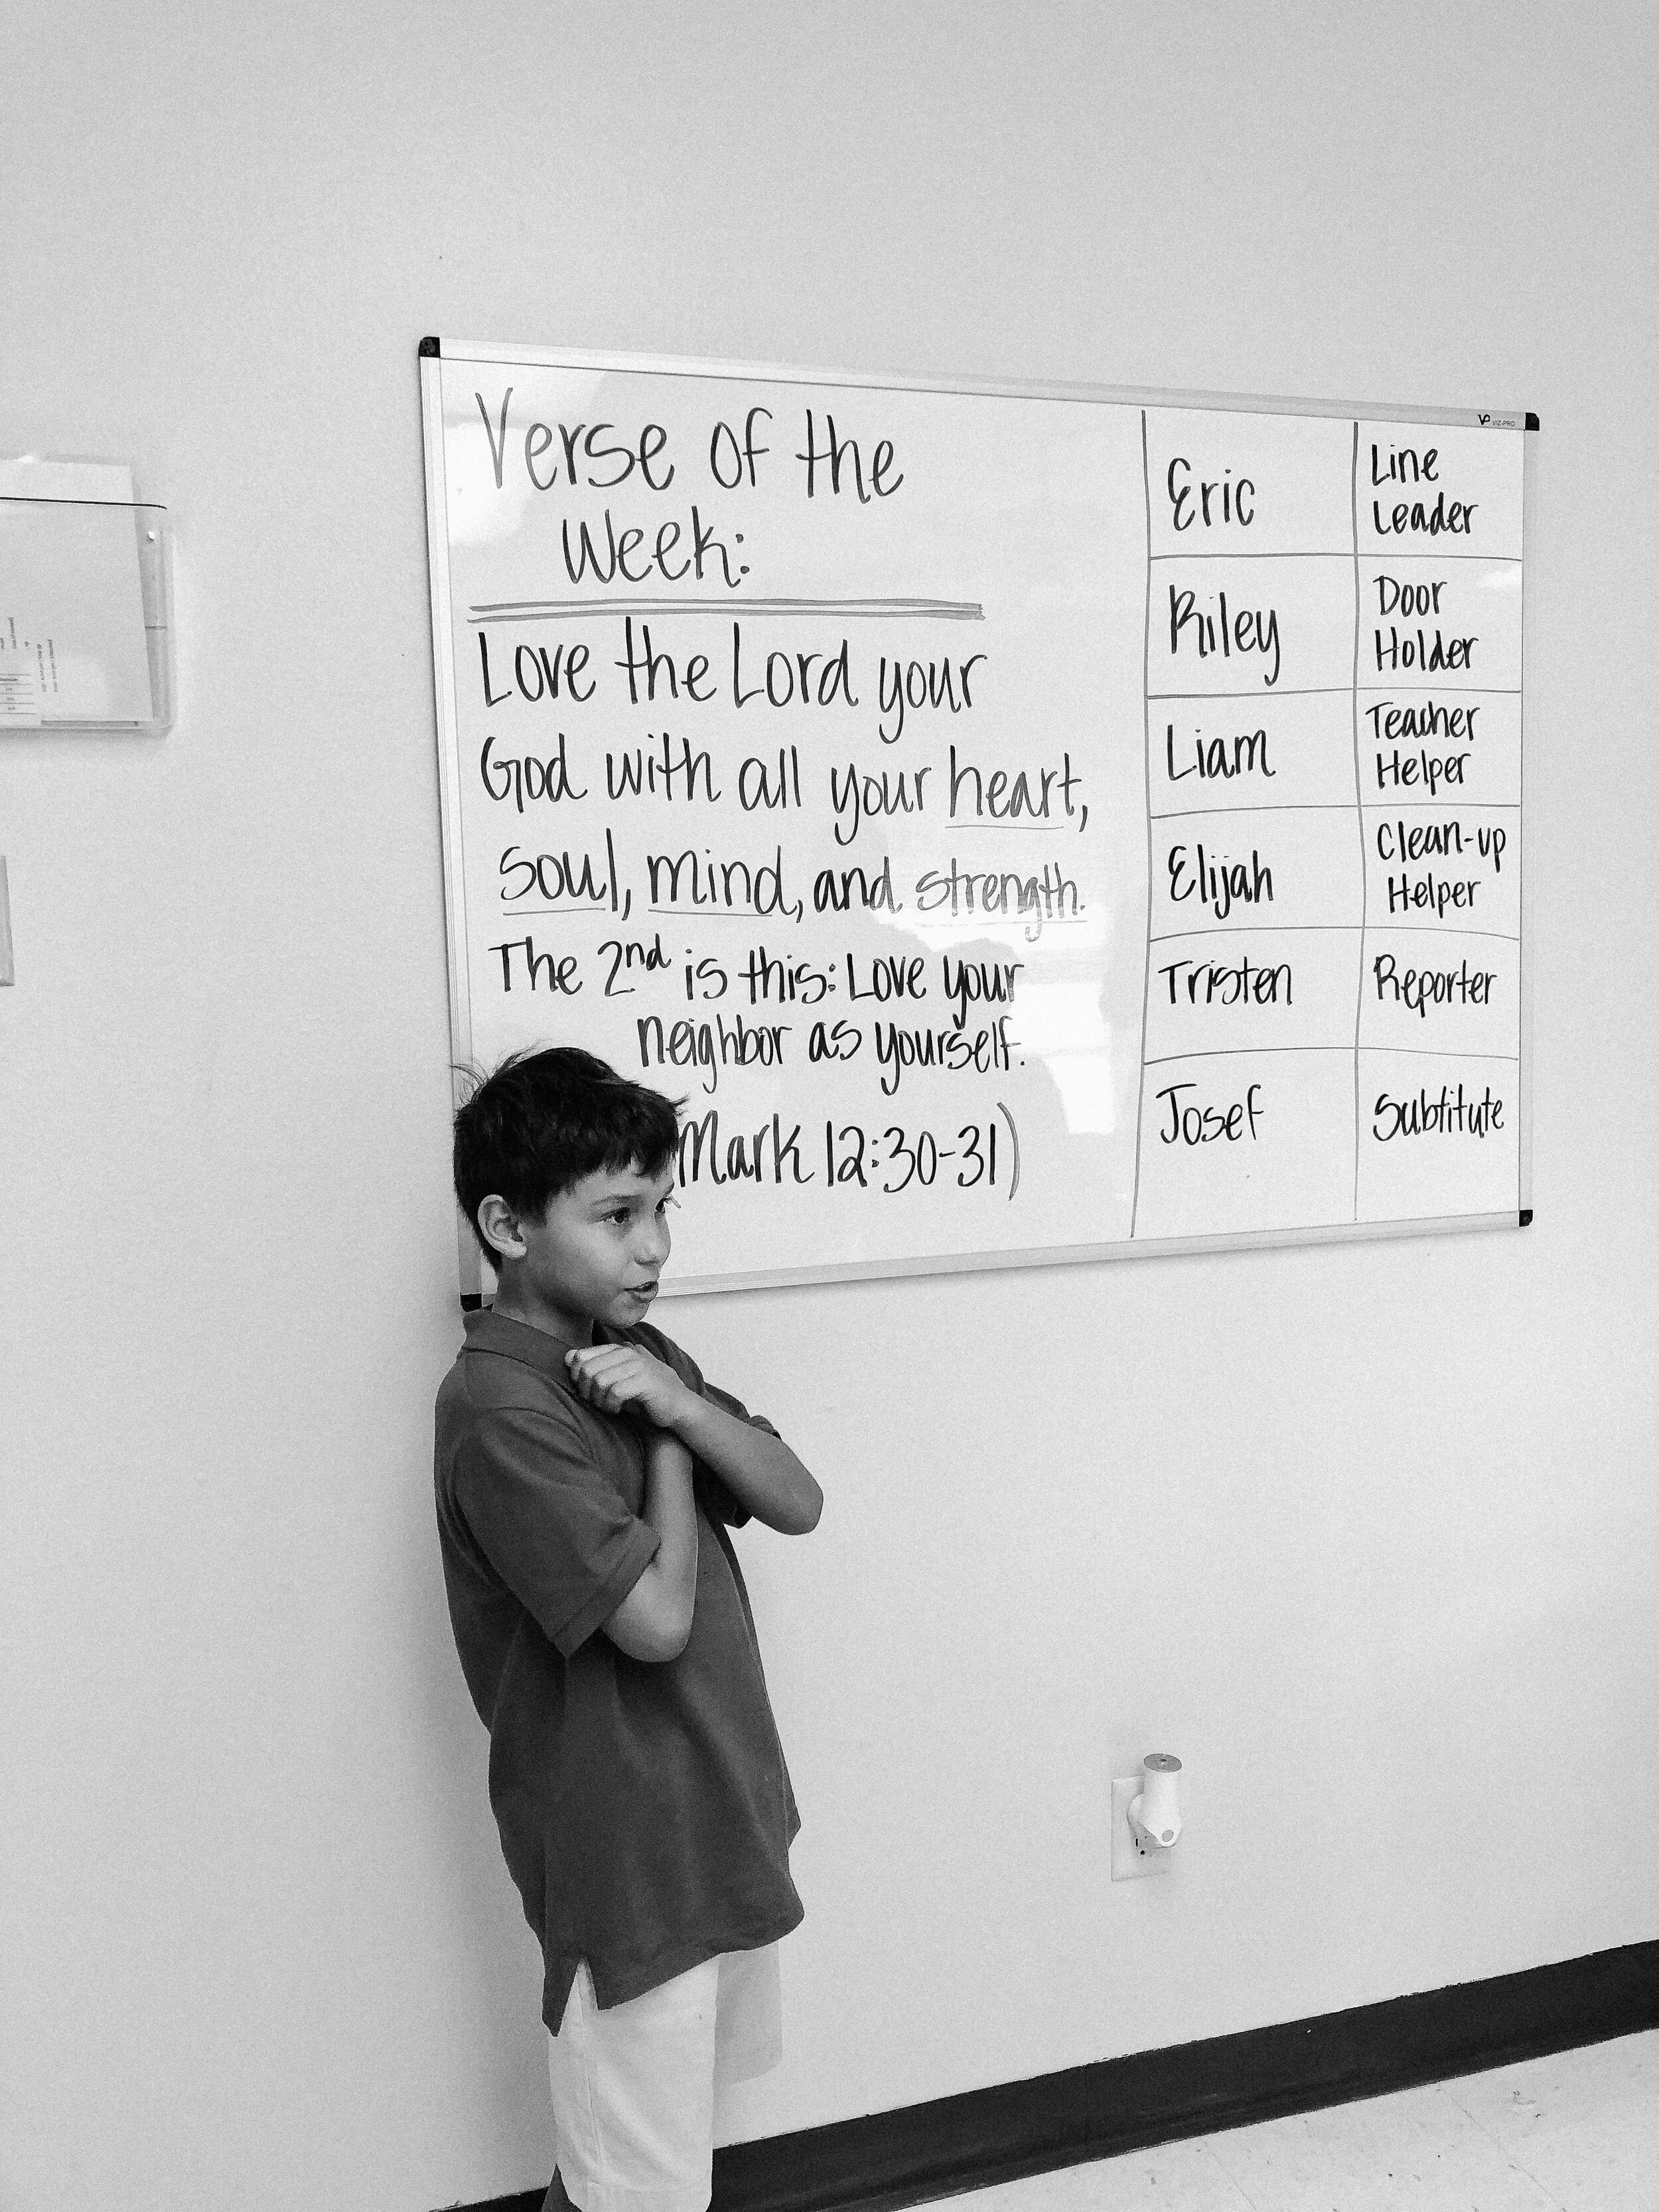 Verse of the
Week:
Love the Lord your
God with all your heart,
soul, mind, and strength.
The 2nd is this: Love your
neighbor as yourself.
Mark 12:30-31)
VP VIZ-PRO
Eric
Line
Leader
Riley
Door
Holder
Liam
Teacher
Helper
Elijah
Clean-up
Helper
Tristen
Reporter
Josef
Subtitute